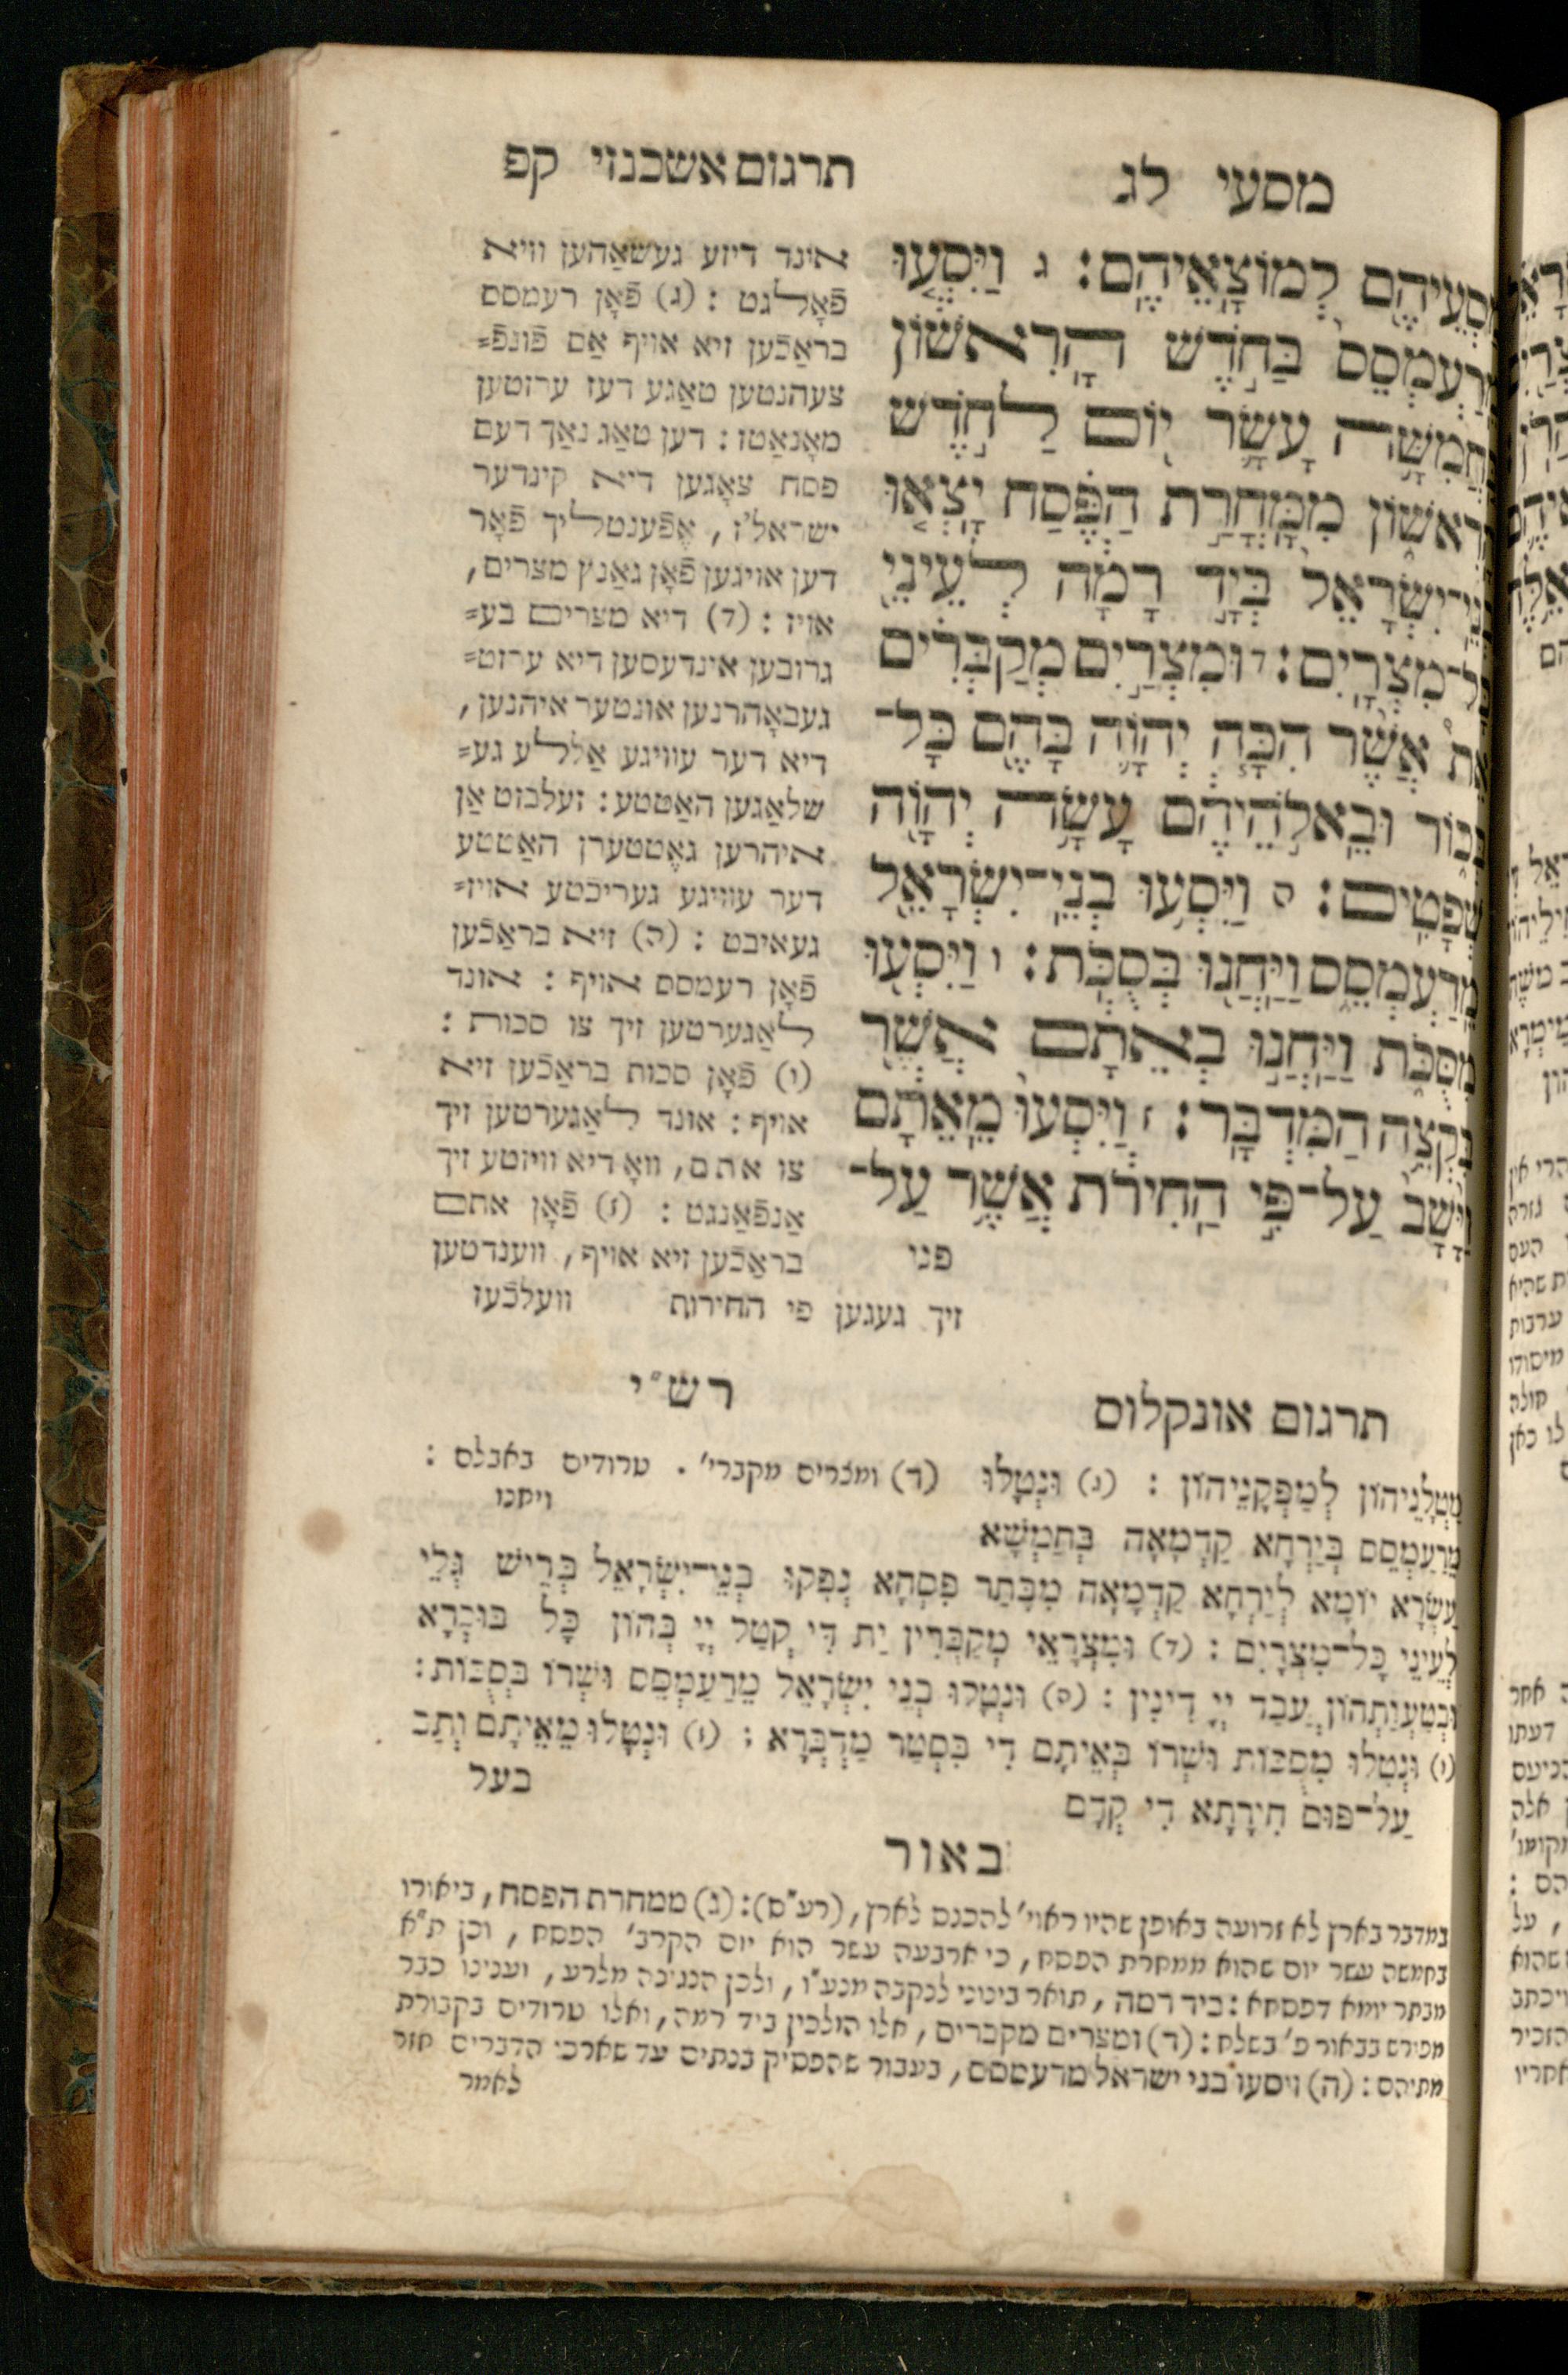 מסעי לג
תרגום אשכנזי קפ
מַסְעֵיהֶ֖ם לְמוֹצָאֵיהֶֽם׃ ג וַיִּסְע֤וּ
מֵֽרַעְמְסֵס֙ בַּחֹ֣דֶשׁ הָֽרִאשׁ֔וֹן
בַּחֲמִשָּׁ֥ה עָשָׂ֛ר י֖וֹם לַחֹ֣דֶשׁ
הָרִאשׁ֑וֹן מִֽמָּחֳרַ֣ת הַפֶּ֗סַח יָצְא֤וּ
בְנֵֽי־יִשְׂרָאֵל֙ בְּיָ֣ד רָמָ֔ה לְעֵינֵ֖י
כָּל־מִצְרָֽיִם׃ ד וּמִצְרַ֣יִם מְקַבְּרִ֗ים
אֵת֩ אֲשֶׁ֨ר הִכָּ֧ה יְהוָ֛ה בָּהֶ֖ם כָּל־
בְּכ֑וֹר וּבֵאלֹ֣הֵיהֶ֔ם עָשָׂ֥ה יְהוָ֖ה
שְׁפָטִֽים׃ ה וַיִּסְע֥וּ בְנֵֽי־יִשְׂרָאֵ֖ל
מֵרַעְמְסֵ֑ס וַֽיַּחֲנ֖וּ בְּסֻכֹּֽת׃ ו וַיִּסְע֖וּ
מִסֻּכֹּ֑ת וַיַּחֲנ֣וּ בְאֵתָ֔ם אֲשֶׁ֖ר
בִּקְצֵ֥ה הַמִּדְבָּֽר׃ ז וַיִּסְעוּ֙ מֵֽאֵתָ֔ם
וַיָּ֙שָׁב֙ עַל־פִּ֣י הַֽחִירֹ֔ת אֲשֶׁ֥ר עַל־
פני
אינד דיזע געשאַהען וויא
פֿאָלגט : (ג) פֿאָן רעמסס
בראַכֿען זיא אויף אַם פֿונפֿ=
צעהנטען טאַגע דעז ערזטען
מאָנאַטז : דען טאַג נאַך דעם
פסח צאָגען דיא קינדער
ישראל'ז , אֶפֿענטליך פֿאָר
דען אויגען פֿאָן גאַנץ מצרים ,
אויז : (ד) דיא מצרים בע=
גרובען אינדעסען דיא ערזט=
געבאָהרנען אונטער איהנען ,
דיא דער עוויגע אַללע גע=
שלאַגען האַטטע : זעלבזט אַן
איהרען גאֶטטערן האַטטע
דער עוויגע געריכֿטע אויז=
געאיבט : (ה) זיא בראַכֿען
פֿאָן רעמסס אויף : אונד
לאַגערטען זיך צו סכות :
(ו) פֿאָן סכות בראַכֿען זיא
אויף : אונד לאַגערטען זיך
צו אתם , וואָ דיא וויזטע זיך
אַנפֿאַנגט : (ז) פֿאָן אתם
בראַכֿען זיא אויף , ווענדטען
זיך געגען פי החירות וועלכֿעז
תרגום אונקלוס
מַטְלָנֵיהוֹן לְמַפְּקָנֵיהוֹן : (ג) וּנְטָלוּ
מֵרַעְמְסֵס בְּיַרְחָא קַדְמָאָה בְּחַמְשָׁא
עַשְׂרָא יוֹמָא לְיַרְחָא קַדְמָאָה מִבָּתַר פִּסְחָא נְפָקוּ בְנֵי־יִשְׂרָאֵל בְּרֵישׁ גְּלֵי
לְעֵינֵי כָּל־מִצְרָיִם : (ד) וּמִצְרָאֵי מְקַבְּרִין יַת דִּי קְטַל יְיָ בְּהוֹן כָּל בּוּכְרָא
וּבְטַעֲוַתְהוֹן עֲבַד יְיָ דִּינִין : (ה) וּנְטָלוּ בְנֵי יִשְׂרָאֵל מֵרַעַמְסֵס וּשְׁרוֹ בְּסֻכּוֹת :
(ו) וּנְטָלוּ מִסֻּכּוֹת וּשְׁרוֹ בְּאֵיתָם דִּי בִּסְטַר מַדְבְּרָא : (ז) וּנְטָלוּ מֵאֵיתָם וְתַב
עַל־פּוּם חִירָתָא דִּי קֳדָם
בעל
רש"י
(ד) ומצרים מקברי' . טרודים באבלם :
ויחנו
באור
במדבר בארץ לא זרועה באופן שהיו ראוי' להכנס לארץ , (רע"ס) : (ג) ממחרת הפסח , ביאורו
בחמשה עשר יום שהוא ממחרת הפסח , כי ארבעה עשר הוא יום הקרב' הפסח , וכן ת"א
מבתר יומא דפסחא : ביד רמה , תואר בינוני לנקבה מנע"ו , ולכן הנגינה מלרע , וענינו כבר
מפורש בבאור פ' בשלח : (ד) ומצרים מקברים , אלו הולכין ביד רמה , ואלו טרודים בקבורת
מתיהם : (ה) ויסעו בני ישראל מרעמסס , בעבור שהפסיק בנתים עד שארכו הדברים חזר
לאמר